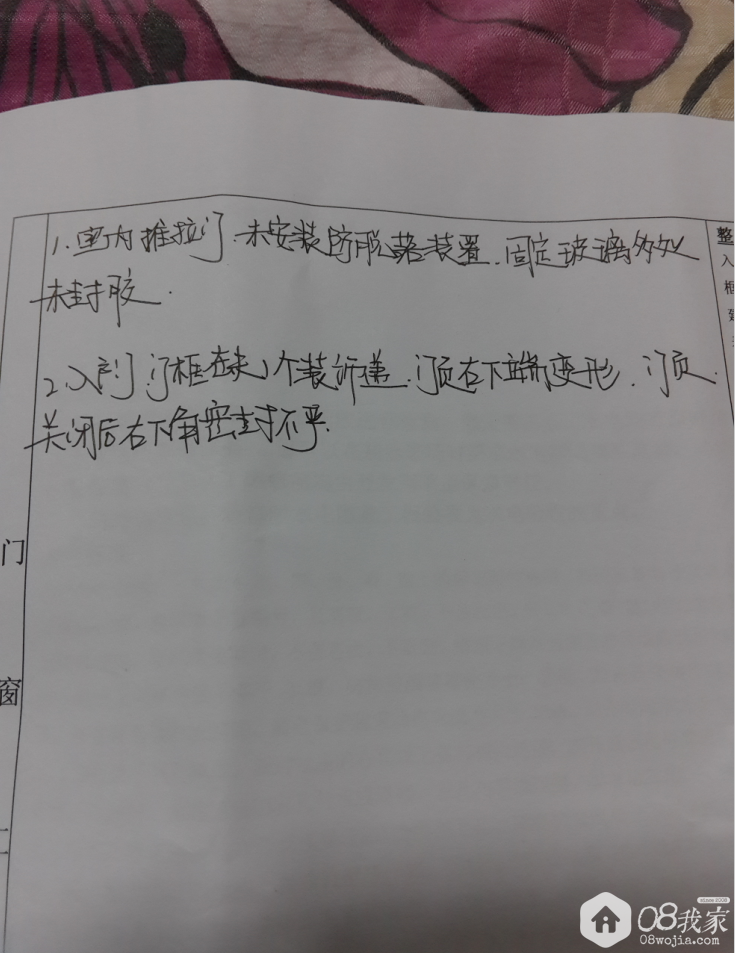 1.室内推拉门.未安装防脱落装置.固定玻璃多处
未封胶.
2.入户门.门框左 个装 .门页右下端变形.门页
关闭后右下角密封不严.
门
窗
整
入
框
08我家
08wojia.com